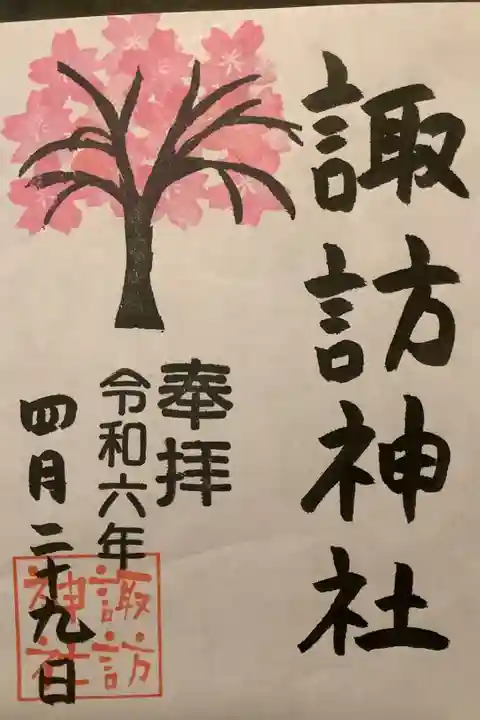 諏訪神社
奉拝
令和六年
四月二十九日
諏訪
神社